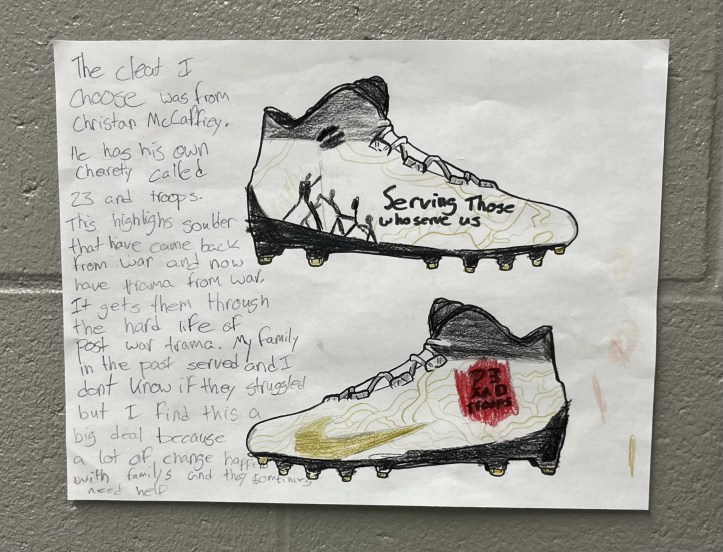 The cleat I
choose was from
Christan McCaffrey.
He has his own
charety called
23 and troops.
This highlighs soulder
that have came back
from war and now
have trama from war.
It gets them through
the hard life of
Post war trama. My family
in the past served and I
dont know if they struggled
but I find this a
big deal because
a lot of change happens
with family's and they somtimes
need help
Serving Those
who serve us
23
AND
Troops